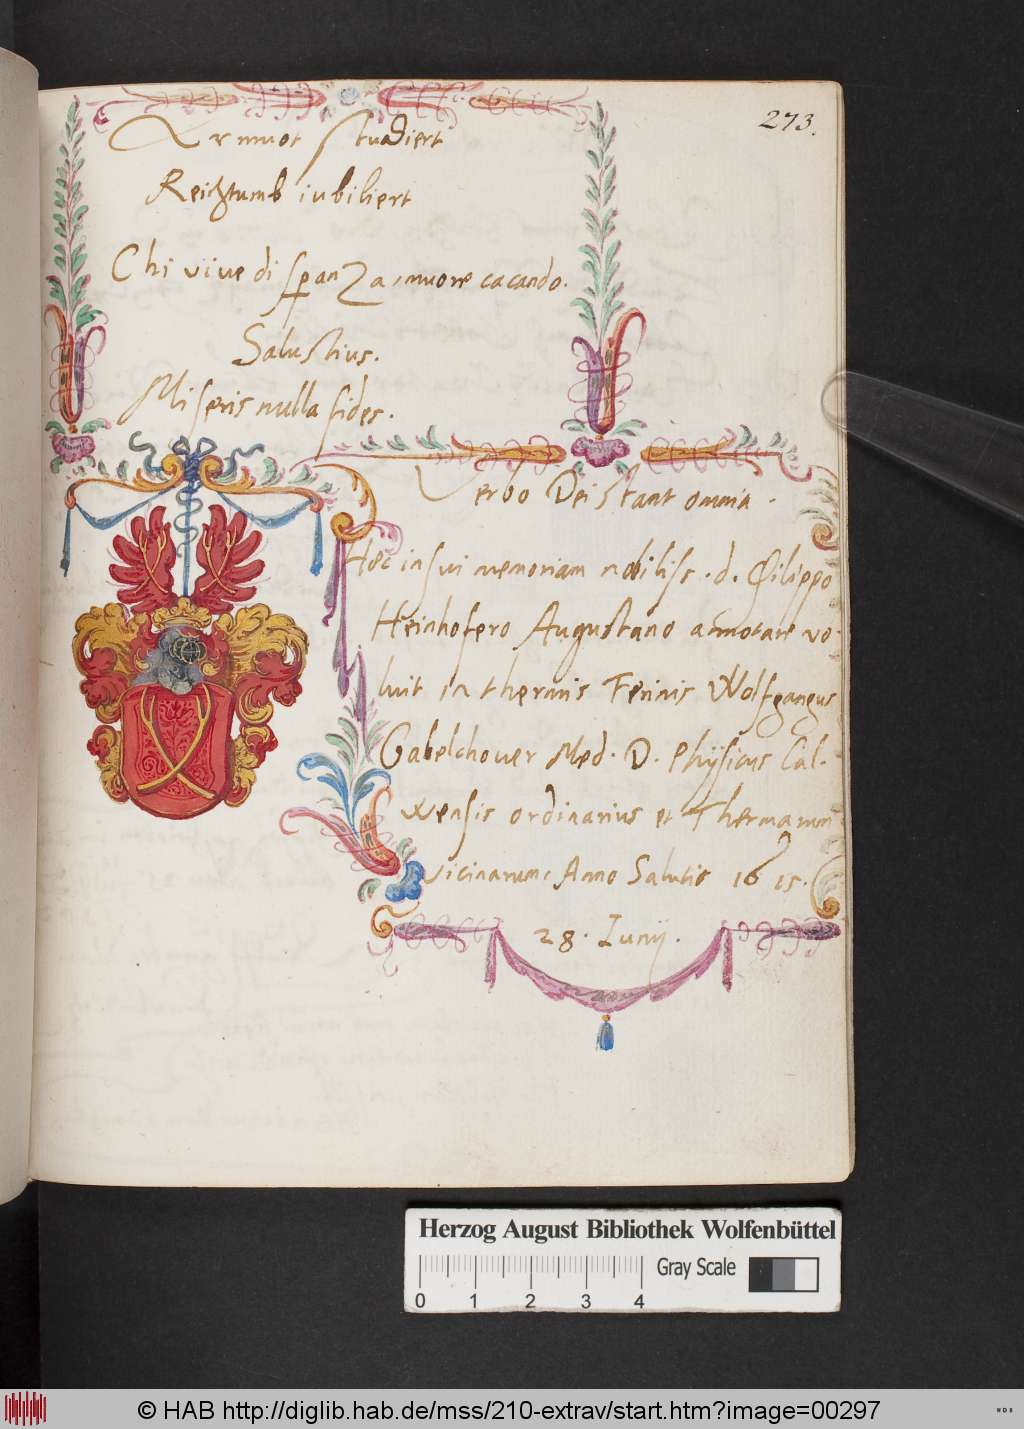 273.
Armuot studiert
Reichtumb iubiliert
Chi viue di speranza, muore cacando.
Salustius.
Miseris nulla fides.
Verbo Dei stant omnia.
Hec in sui memoriam nobiliss. d. Philippo
Heinhofero Augustano annotare vo-
luit in thermis Ferinis Wolfgangus
Gabelchouer Med. D. Physicus Cal-
wensis ordinarius et Thermarum
vicinarum, Anno Salutis 1615.
28. Iunij.
Herzog August Bibliothek Wolfenbüttel
Gray Scale
0 1 2 3 4
© HAB http://diglib.hab.de/mss/210-extrav/start.htm?image=00297